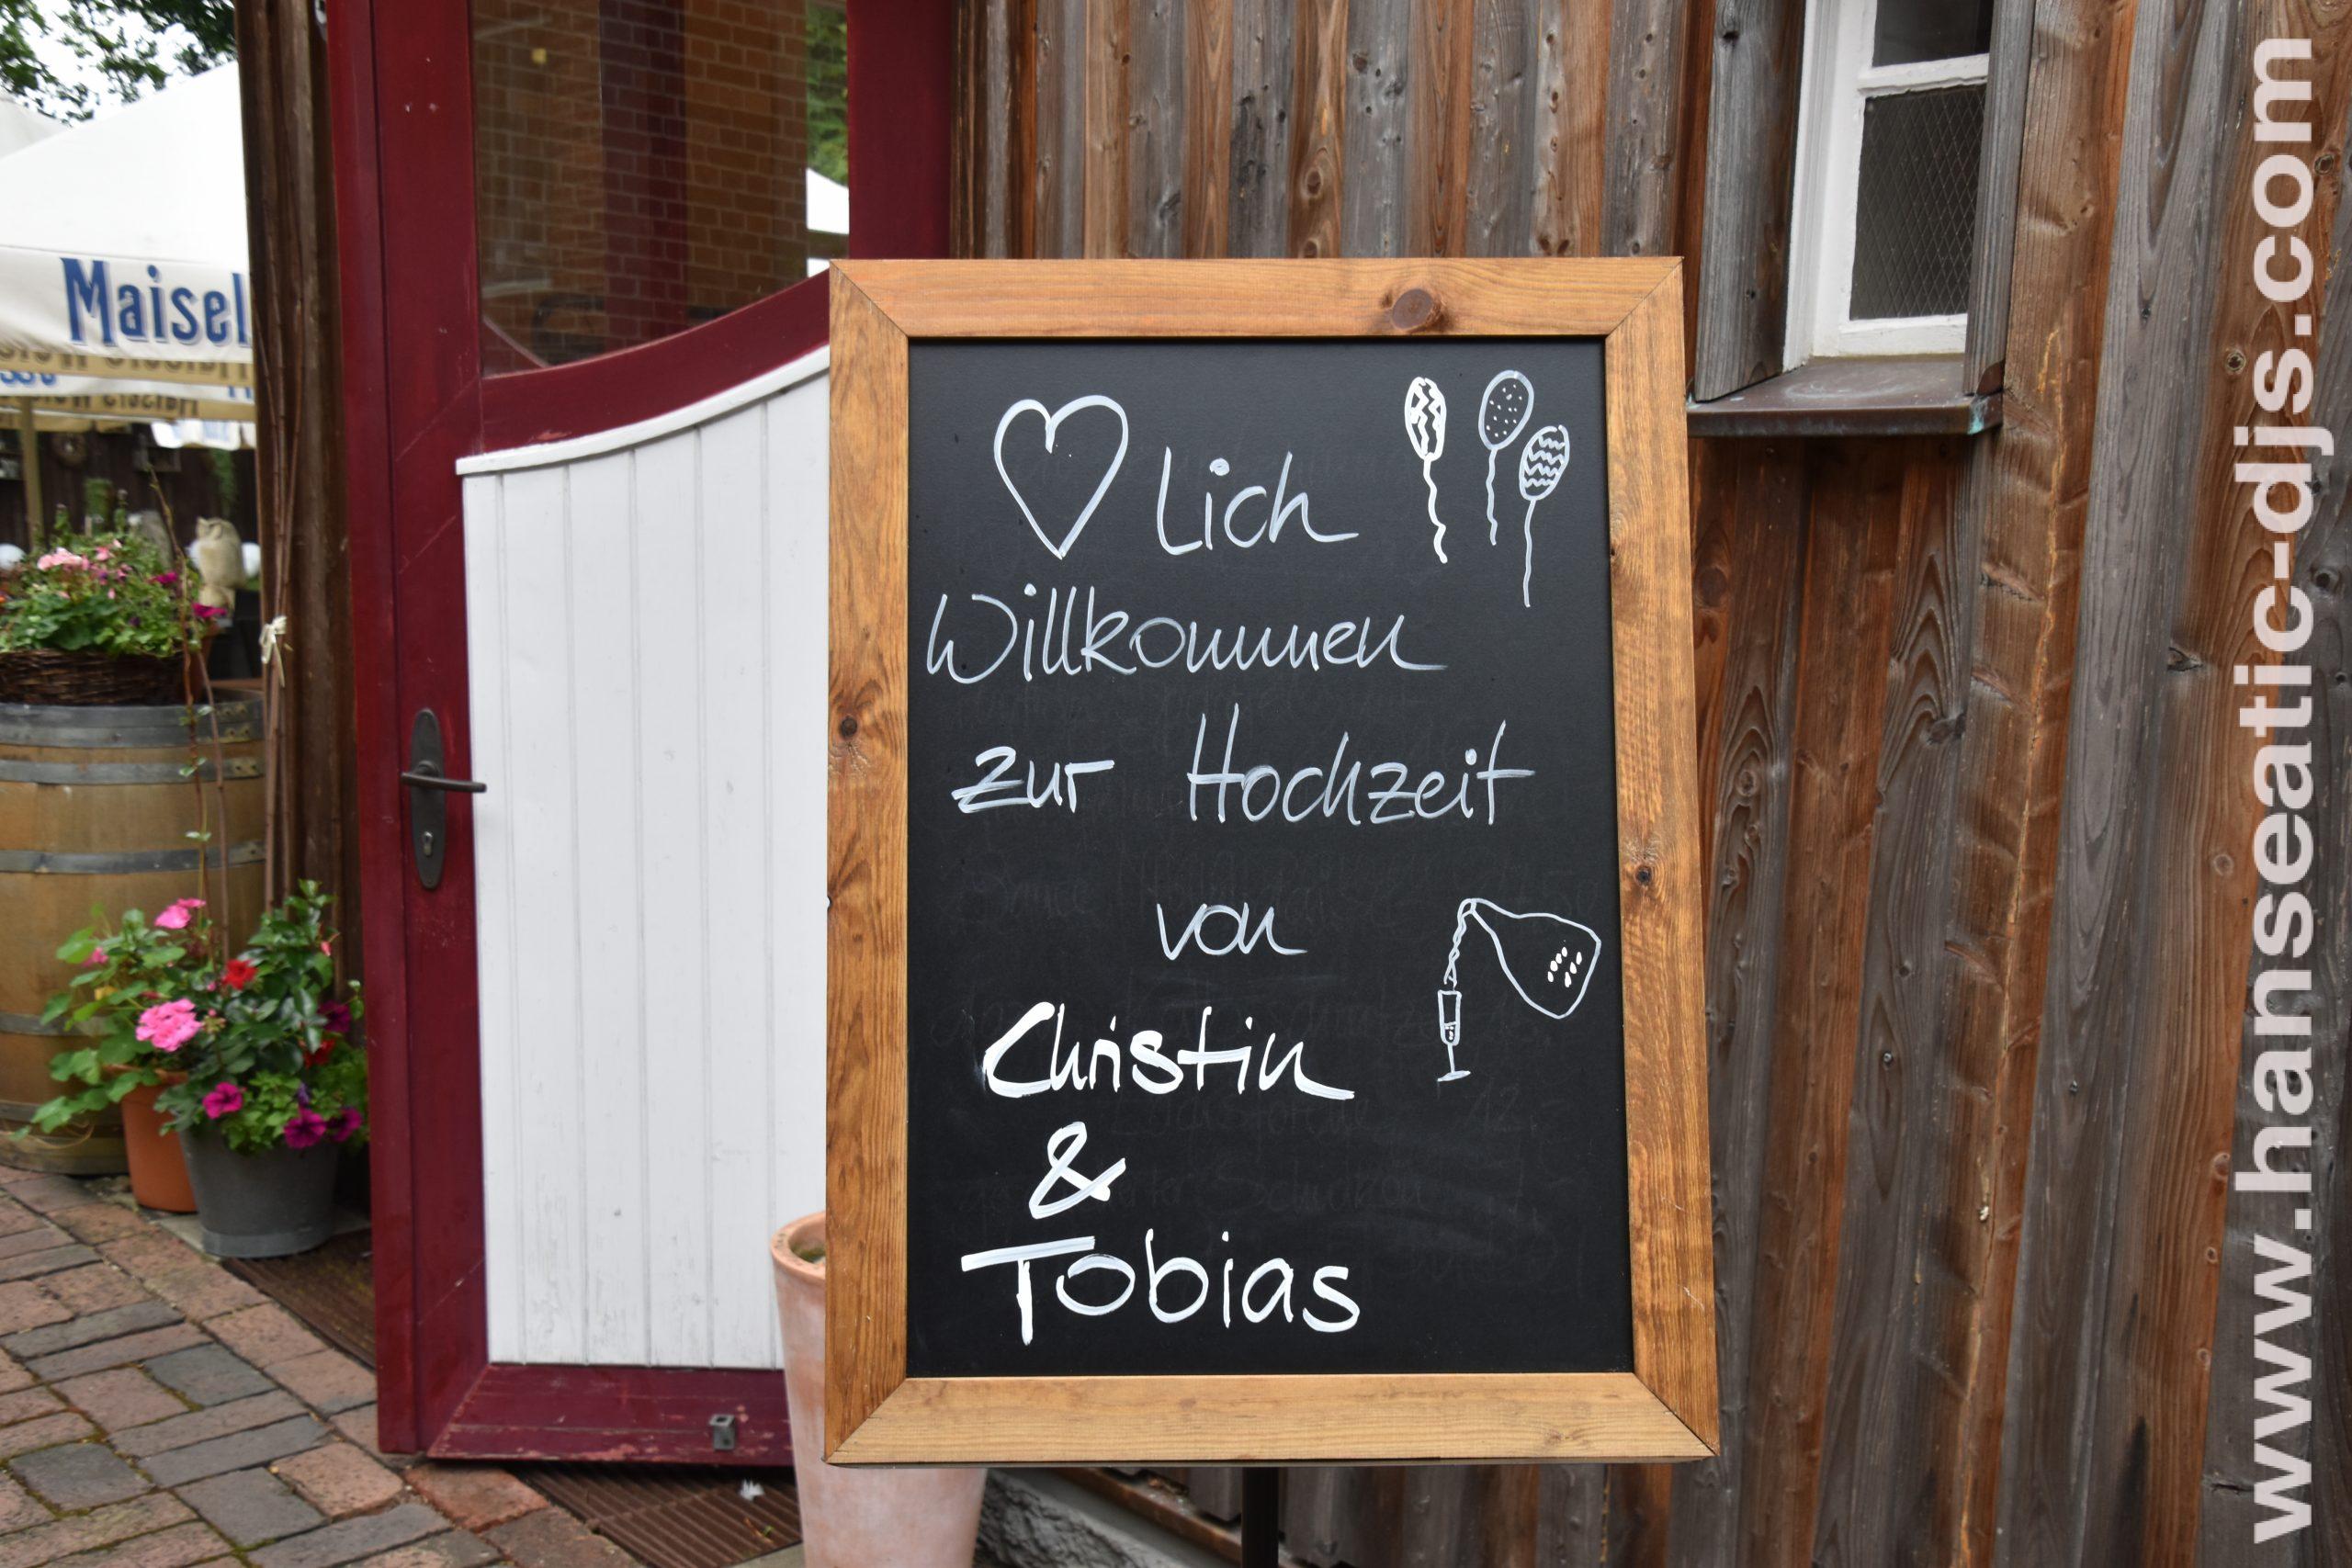 Maisel
♡lich
Willkommen
zur Hochzeit
von
Christin
&
Tobias
www.hanseatic-djs.com